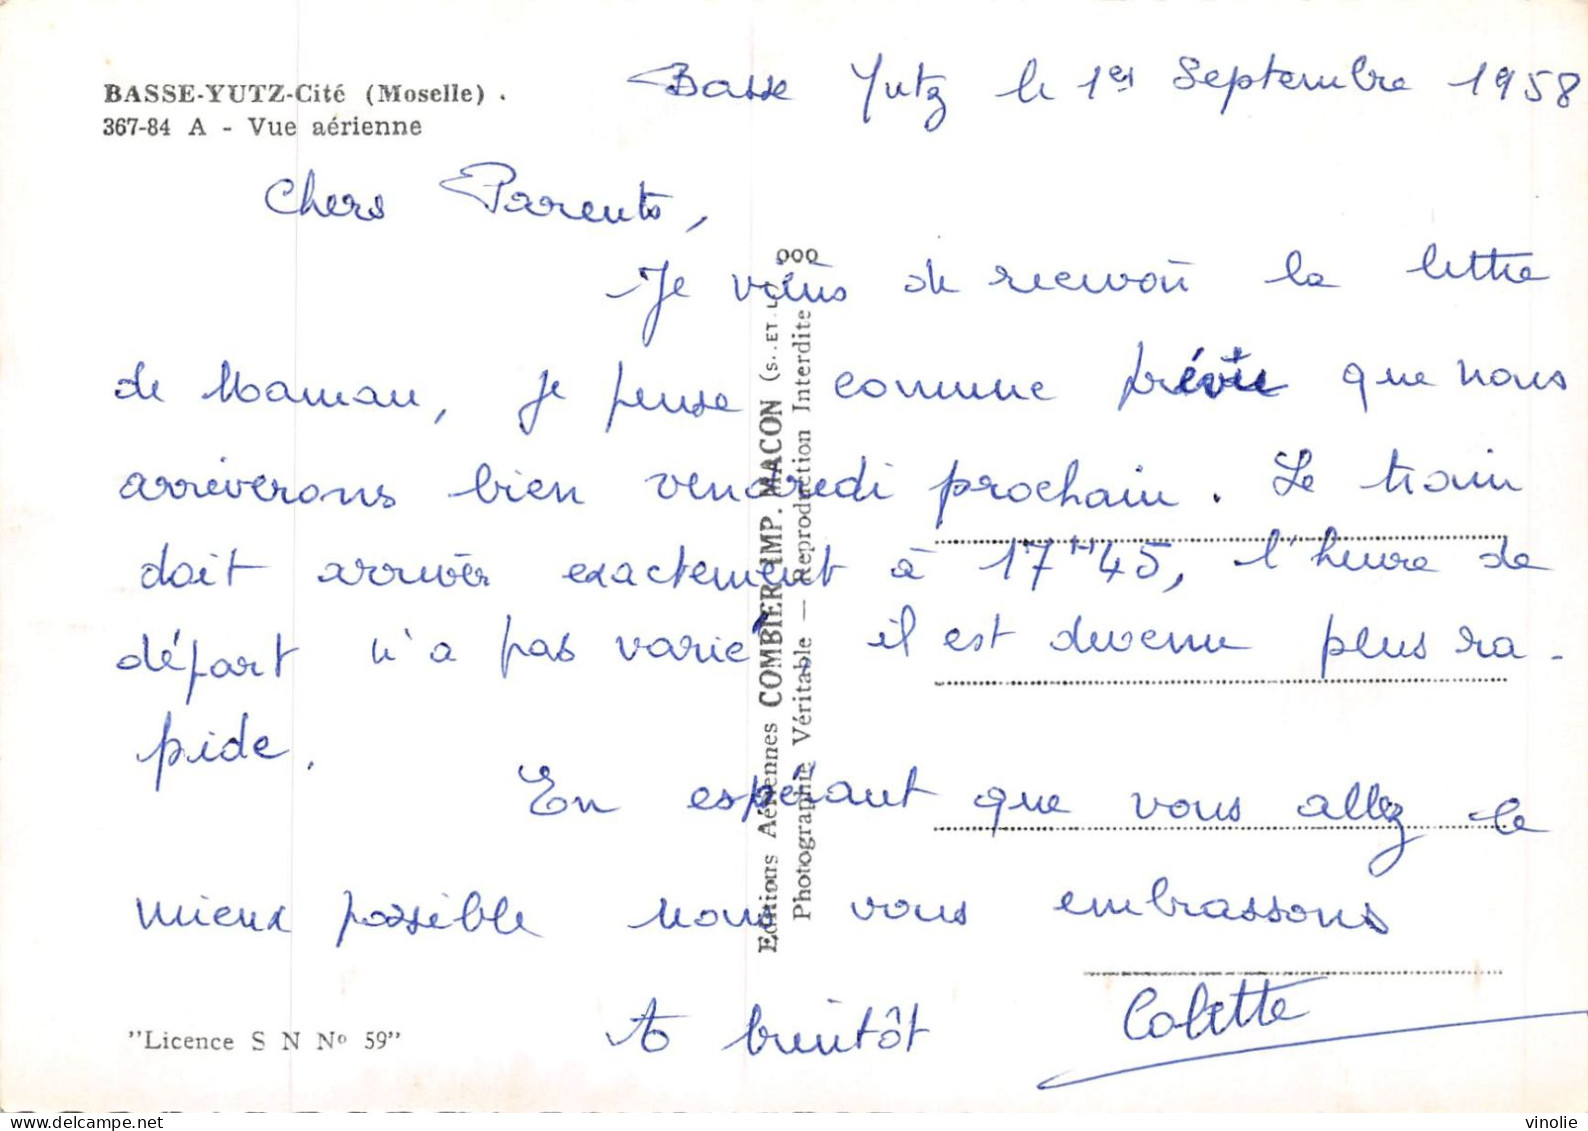 BASSE-YUTZ-Cité (Moselle) .
367-84 A - Vue aérienne
Basse Yutz le 1er Septembre 1958
Chers Parents,
Je viens de recevoir la lettre
de Maman, je pense comme prévu que nous
arriverons bien vendredi prochain. Le train
doit arriver exactement à 17H45, l'heure de
départ n'a pas varié il est devenu plus ra-
pide.
En espérant que vous allez le
mieux possible nous vous embrassons
A bientôt Colette
"Licence S N No 59"
Editions Aériennes COMBIER IMP. MACON (S.-ET-L.)
Photographie Véritable — Reproduction Interdite
vinolie